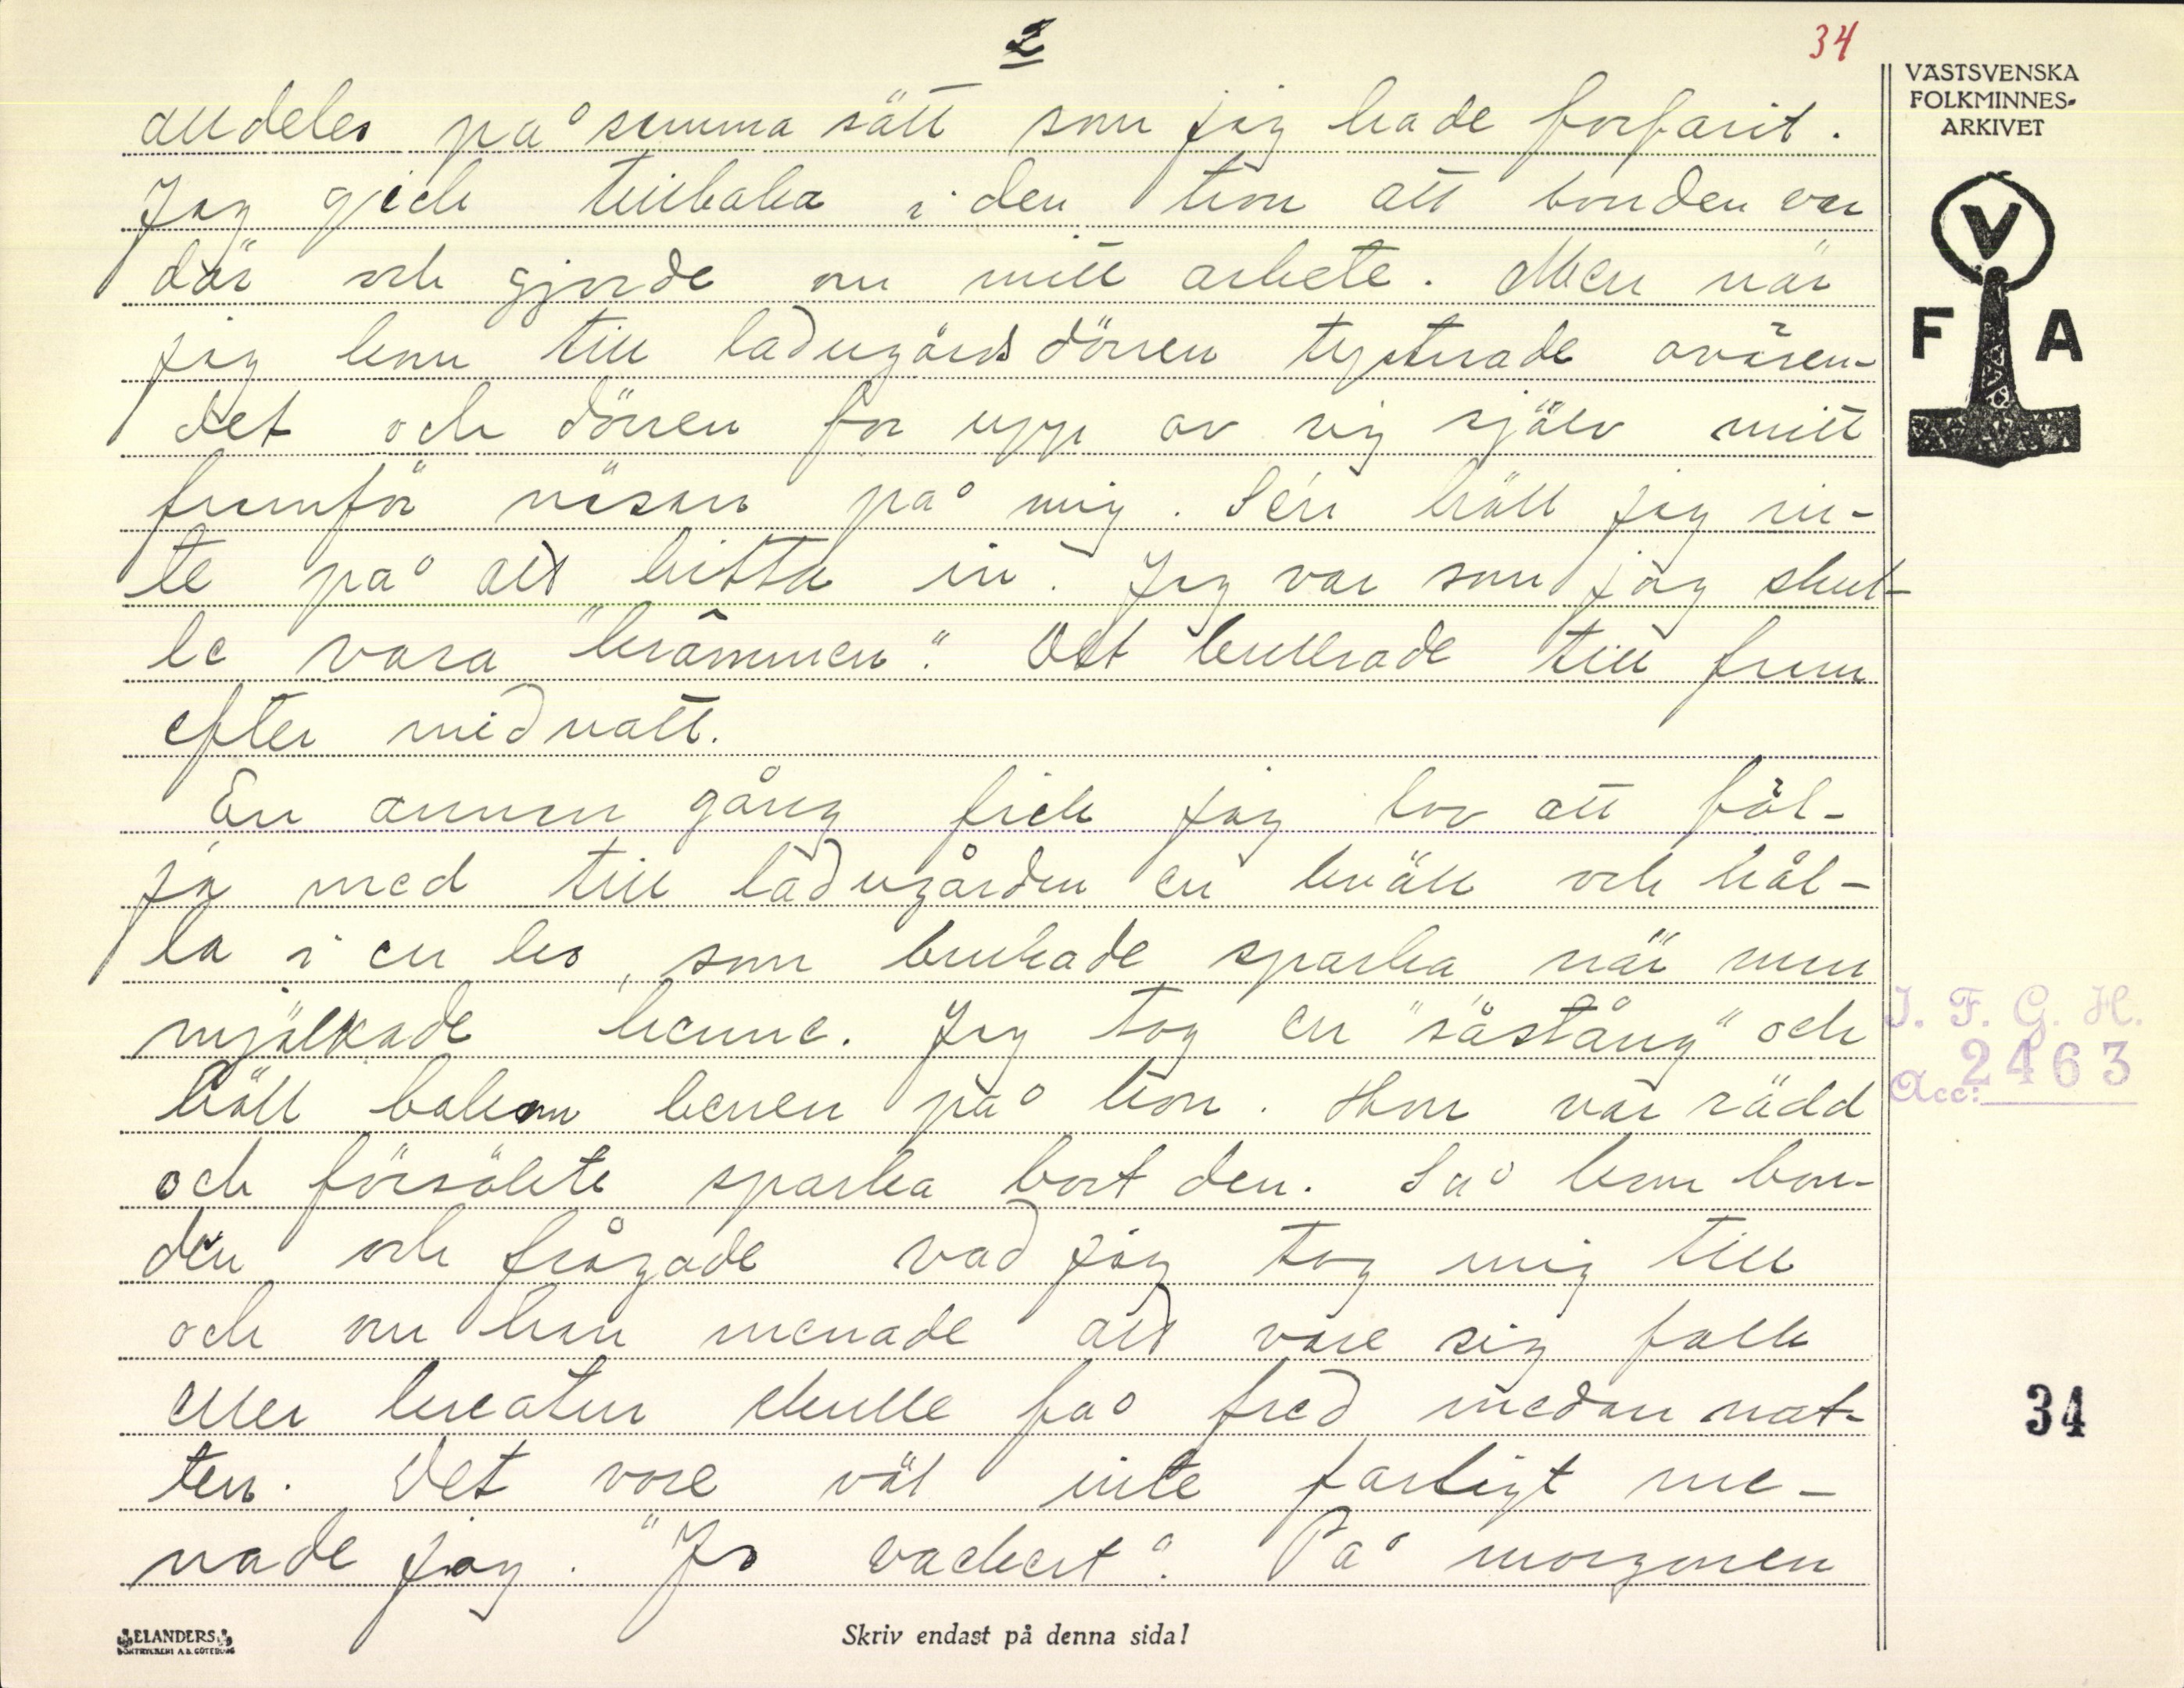 2
34
VÄSTSVENSKA
FOLKMINNES-
ARKIVET
V
F A
alldeles på samma sätt som jag hade forfarit.
Jag gick tillbaka i den tron att bonden var
där och gjorde om mitt arbete. Men när
jag kom till ladugårdsdörren tystnade oväsen-
det och dörren for upp av sig själv mitt
framför näsan på mig. Sen höll jag in-
te på att hitta in. Jag var som jag skul-
le vara "krâmmen". Det bullrade till fram
efter midnatt.
En annan gång fick jag lov att föl-
ja med till ladugården en kväll och hål-
la i en ko, som brukade sparka när man
mjölkade henne. Jag tog en "såstång" och
höll bakom benen på kon. Hon var rädd
och försökte sparka bort den. Så kom bon-
den och frågade vad jag tog mig till
och om han menade att vare sig folk
eller kreatur skulle få fred medan nat-
ten. Det vore väl inte farligt me-
nade jag. "Jo vackert". På morgonen
I. F. G. H.
Acc: 2463
34
ELANDERS
BOKTRYCKERI A.B. GÖTEBORG
Skriv endast på denna sida!